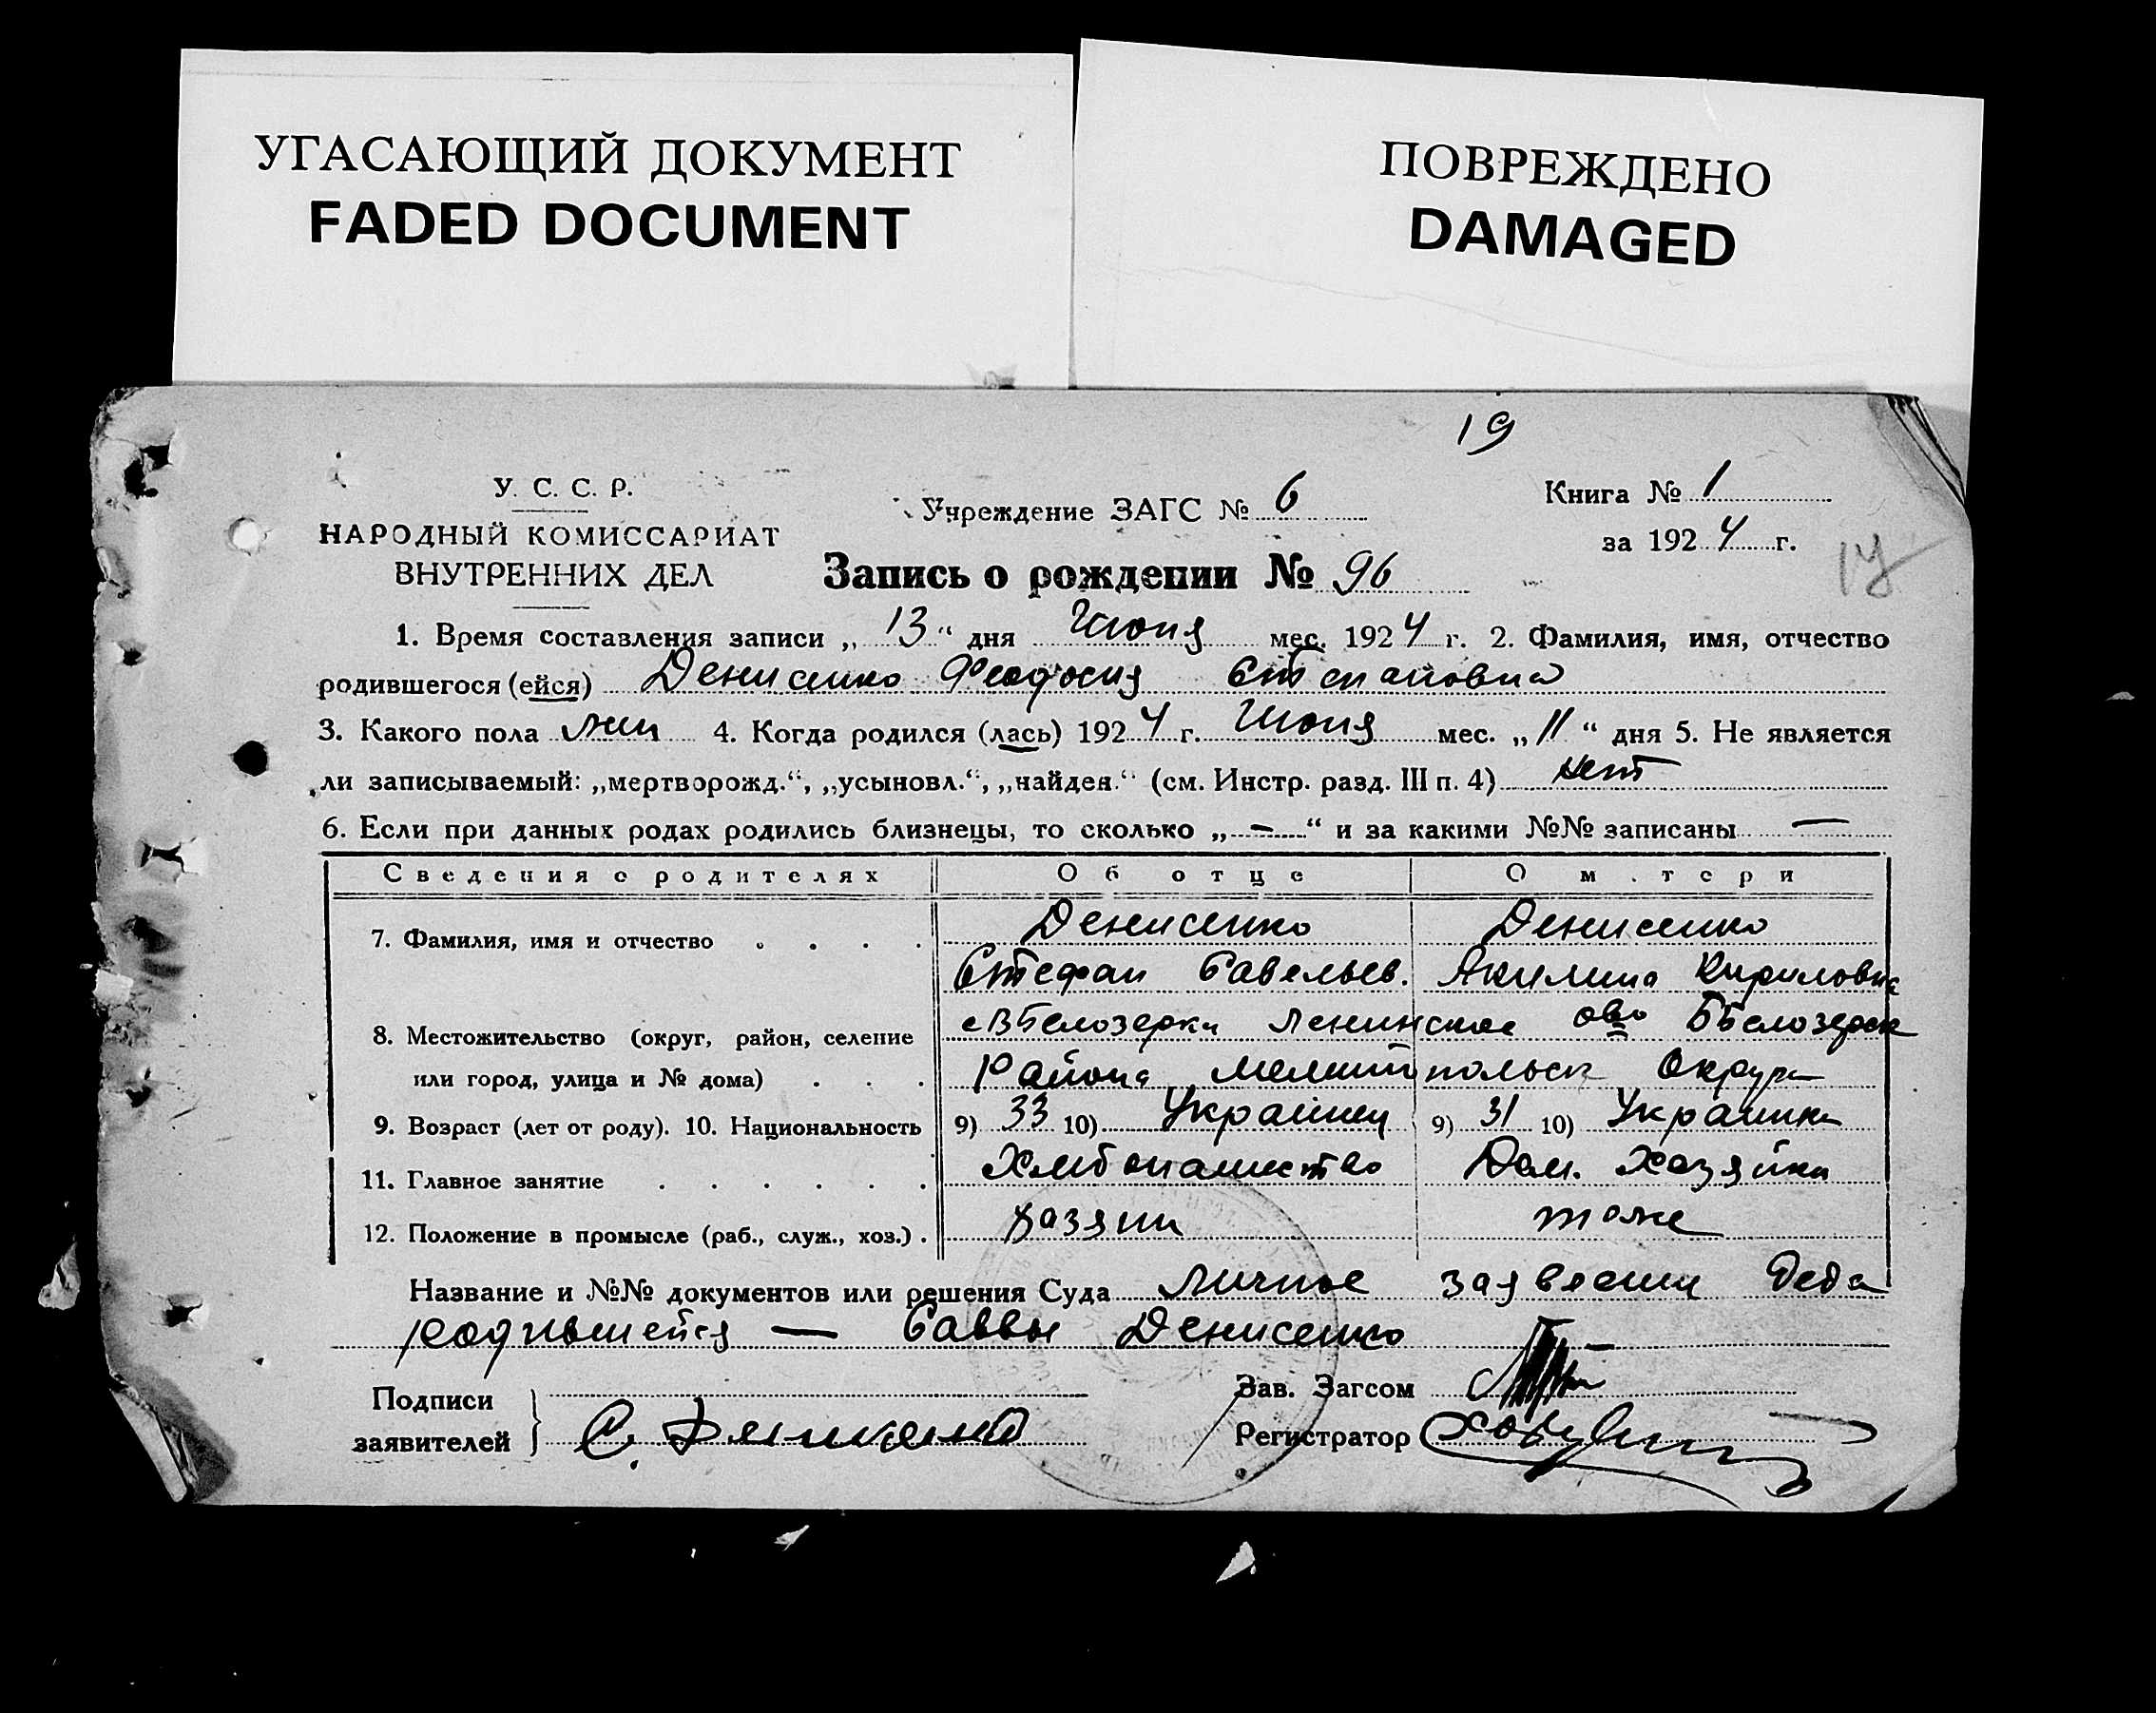 УГАСАЮЩИЙ ДОКУМЕНТ
FADED DOCUMENT
ПОВРЕЖДЕНО
DAMAGED
19
У. С. С. Р.
НАРОДНЫЙ КОМИССАРИАТ
ВНУТРЕННИХ ДЕЛ
Учреждение ЗАГС № 6
Книга № 1
за 1924 г.
Запись о рождении № 96
1. Время составления записи „ 13 “ дня Июня мес. 1924 г. 2. Фамилия, имя, отчество
родившегося (ейся) Денисенко Феодосия Степановна
3. Какого пола жен 4. Когда родился (лась) 1924 г. Июня мес. „ 11 “ дня 5. Не является
ли записываемый: „мертворожд.“, „усыновл.“, „найден.“ (см. Инстр. разд. III п. 4) нет
6. Если при данных родах родились близнецы, то сколько „ — “ и за какими №№ записаны —
Сведения о родителях Об отце О м.тери
7. Фамилия, имя и отчество Денисенко Денисенко
Стефан Савельев. Акилина Кириловна
8. Местожительство (округ, район, селение с ВБелозерки Ленинское ово ББелозерск
или город, улица и № дома) Района Мелитопольск Округа
9. Возраст (лет от роду). 10. Национальность 9) 33 10) Украинец 9) 31 10) Украинка
11. Главное занятие Хлебопашество Дом. Хозяйка
12. Положение в промысле (раб., служ., хоз.) хозяин тоже
Название и №№ документов или решения Суда личное заявление Деда
родившейся — Саввы Денисенко
Подписи
заявителей
С. Денисенко
Зав. Загсом
Регистратор